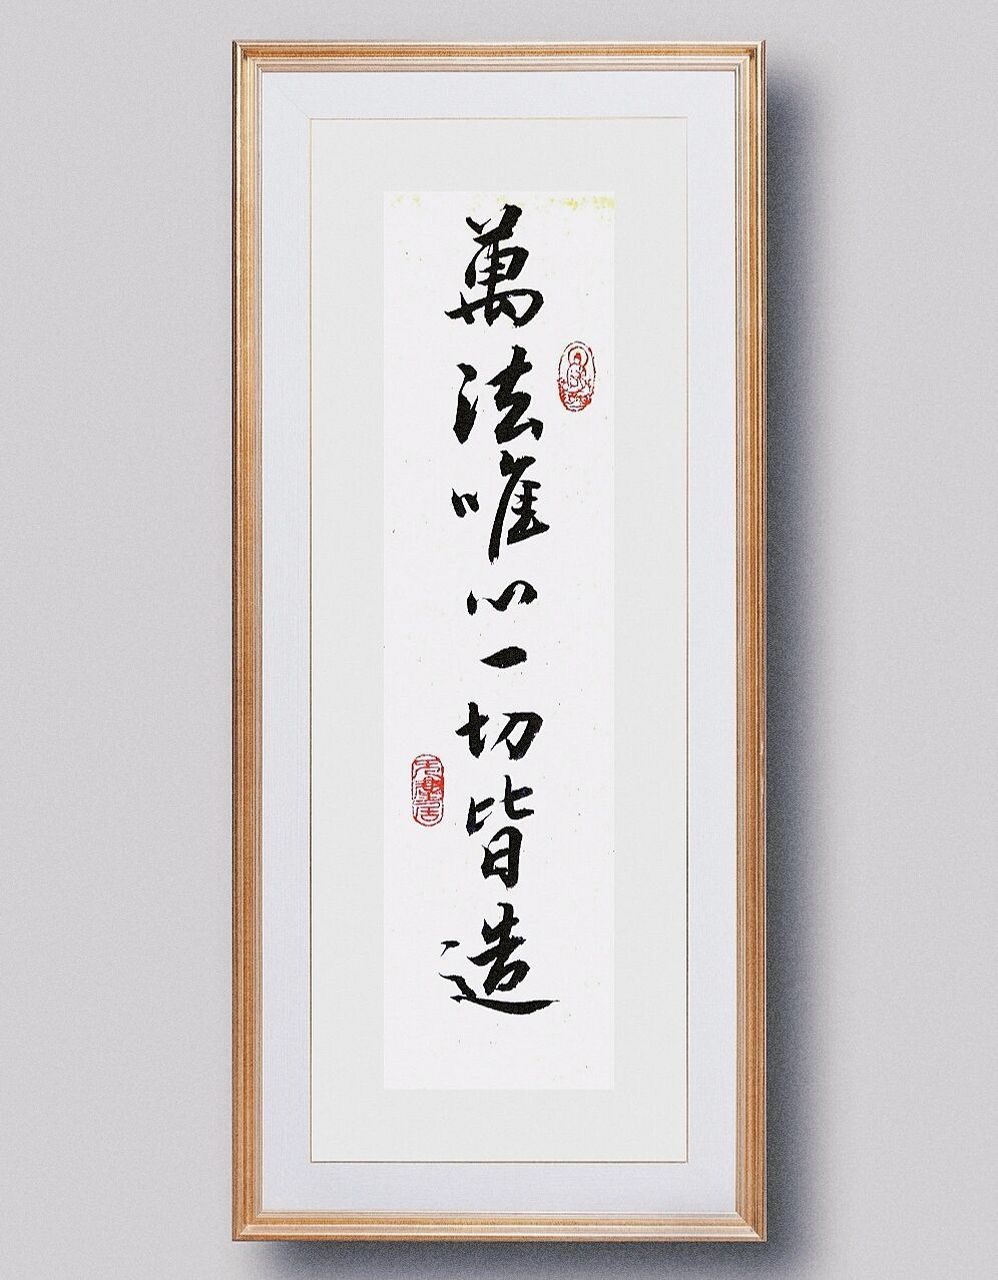 萬法唯心一切皆造